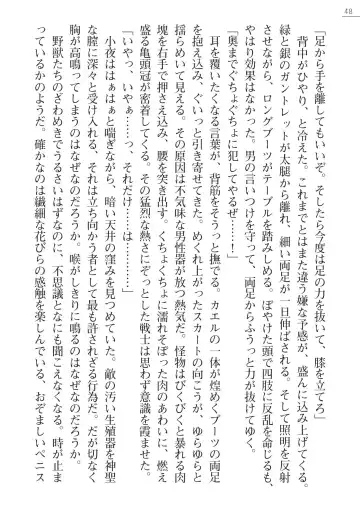 48
「足から手を離してもいいぞ。そしたら今度は足の力を抜いて、膝を立てろ」
背中がひやり、と冷えた。これまでとはまた違う嫌な予感が、盛んに込み上げてくる。
緑と銀のガントレットが太腿から離れ、細い両足が一旦伸ばされる。そして照明を反射
させながら、ロングブーツがテーブルを踏みしめる。ぼやけた頭で四肢に反乱を命じるも、
やはり効果はなかった。男の言いつけを守って、両足からふうっと力が抜けてゆく。
「奥までぐちょぐちょに犯してやるぜ…！」
耳を覆いたくなる言葉が、背筋をそうっと撫でる。カエルの一体が煌めくブーツの両足
を抱え込み、ぐいっと引き寄せてきた。めくれ上がったスカートの向こうが、ゆらゆらと
揺らめいて見える。その原因は不気味な男性器が放つ熱気だ。怪物はびくびくと暴れる肉
塊を右手で押さえ込み、腰を突き出す。くちょくちょに濡れそぼった肉のあわいに、燃え
盛る亀頭冠が密着してくる。その猛烈な熱さにぞっとした戦士は思わず意識を覚ました。
「いやっ、いやぁ……っ、それだけ……は……」
小夜ははぁはぁと喘ぎながら、暗い天井の窪みを見つめていた。敵の汚い生殖器を神聖
な膣に深々と受け入れる、それは立ち向かう者として最も許されざる行為だ。だが切なく
胸が高鳴ってしまうのはなぜなのだろうか。喉がしきりに鳴るのはなぜなのだろうか。
野獣たちのざわめきでうるさいはずなのに、不思議となにも聞こえなくなる。時が止ま
っているかのようだ。確かなのは繊細な花びらの感触を楽しんでいる、おぞましいペニス